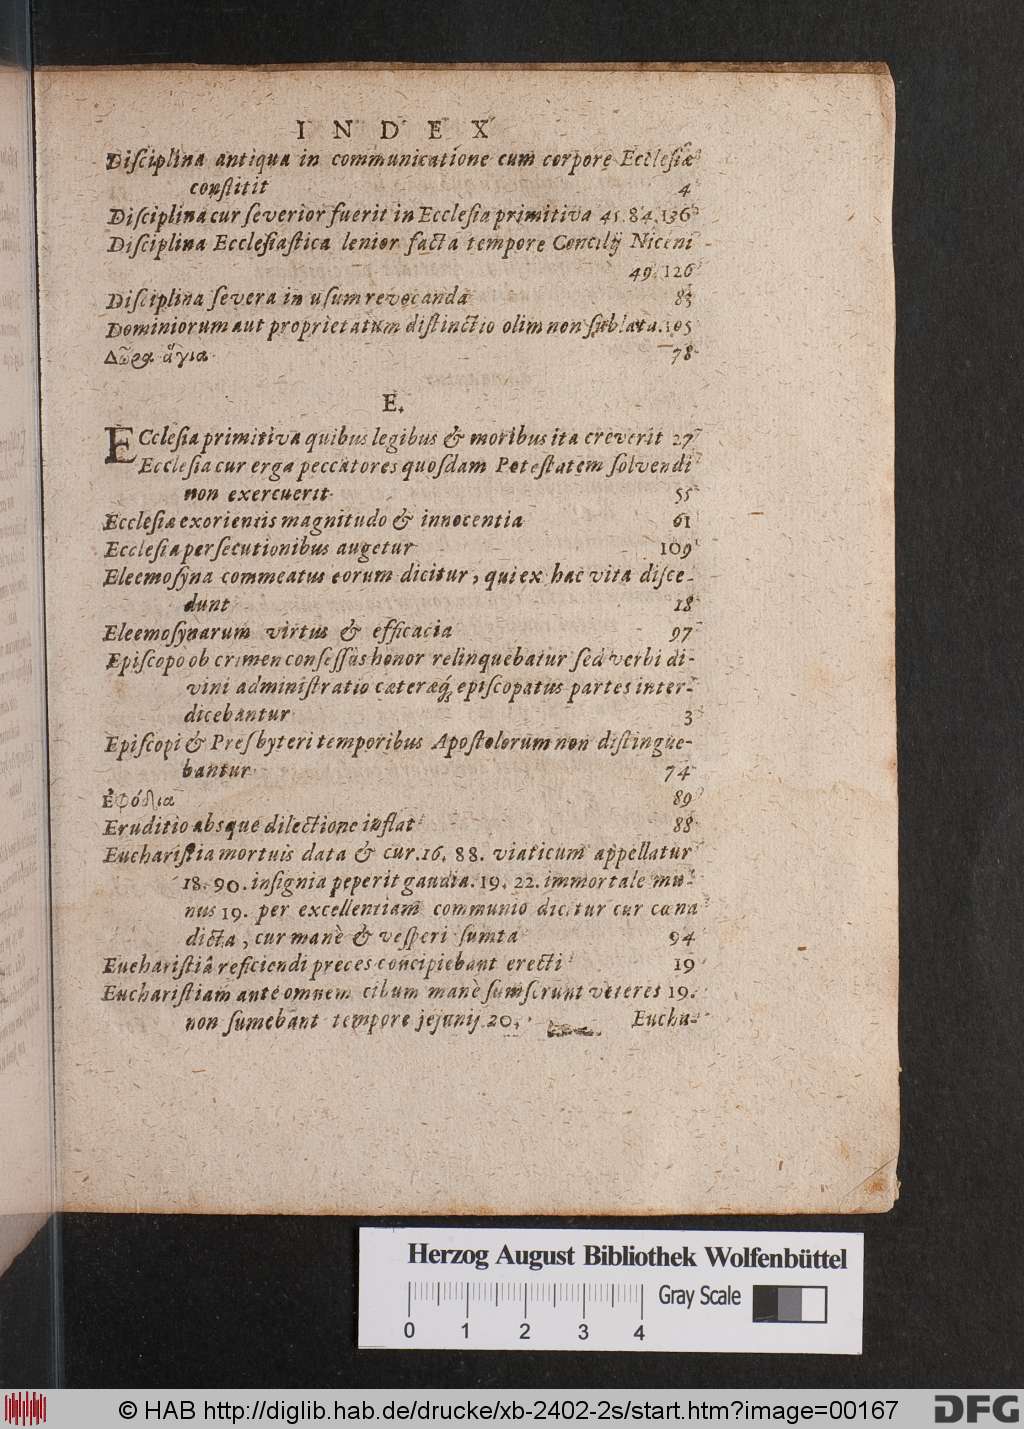 INDEX
Diſciplina antiqua in communicatione cum corpore Eccleſiæ
conſtitit 4
Diſciplina cur ſeverior fuerit in Eccleſia primitiva 45. 84. 136
Diſciplina Eccleſiaſtica lenior facta tempore Concilij Niceni
49. 126
Diſciplina ſevera in uſum revocanda 83
Dominiorum aut proprietatum diſtinctio olim non ſublata. 105
Δῶρα ἅγια 78
E.
ECcleſia primitiva quibus legibus & moribus ita creverit 27
Eccleſia cur erga peccatores quoſdam Poteſtatem ſolvendi
non exercuerit 55
Eccleſiæ exorientis magnitudo & innocentia 61
Eccleſia perſecutionibus augetur 109
Eleemoſyna commeatus eorum dicitur, qui ex hac vita diſce-
dunt 18
Eleemoſynarum virtus & efficacia 97
Epiſcopo ob crimen confeſſus honor relinquebatur ſed verbi di-
vini adminiſtratio cæteræq́; epiſcopatus partes inter-
dicebantur 3
Epiſcopi & Presbyteri temporibus Apoſtolorum non diſtingue-
bantur 74
Ἐφόδια 89
Eruditio absque dilectione inflat 88
Euchariſtia mortuis data & cur. 16. 88. viaticum appellatur
18. 90. inſignia peperit gaudia. 19. 22. immortale mu-
nus 19. per excellentiam communio dicitur cur cœna
dicta, cur manè & veſperi ſumta 94
Euchariſtiâ reficiendi preces concipiebant erecti 19
Euchariſtiam ante omnem cibum manè ſumſerunt veteres 19.
non ſumebant tempore jejunij 20. Eucha-
Herzog August Bibliothek Wolfenbüttel
Gray Scale
0 1 2 3 4
© HAB http://diglib.hab.de/drucke/xb-2402-2s/start.htm?image=00167 DFG